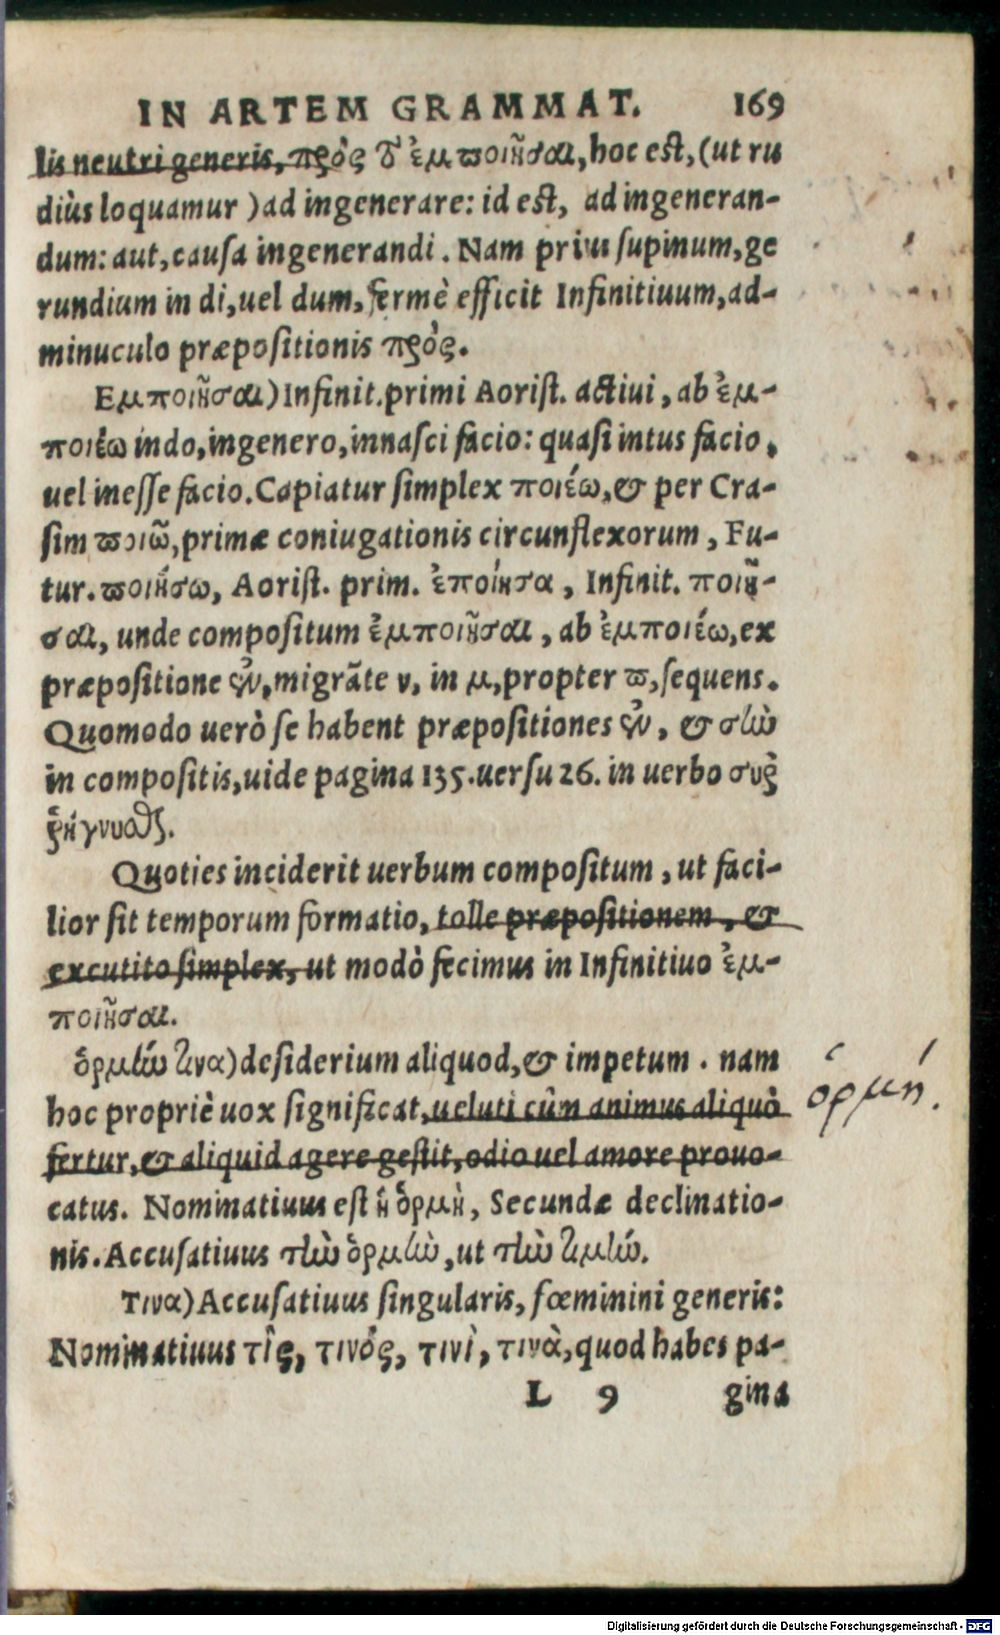 IN ARTEM GRAMMAT. 169
lis neutri generis, πρὸς τ̀ ἐμποιῆσαι, hoc est, (ut ru
diùs loquamur ) ad ingenerare: id est, ad ingeneran-
dum: aut, causa ingenerandi. Nam prius supinum, ge
rundium in di, uel dum, fermè efficit Infinitiuum, ad-
minuculo præpositionis πρὸς.
Εμποιῆσαι) Infinit. primi Aorist. actiui, ab ἐμ-
ποιέω indo, ingenero, innasci facio: quasi intus facio,
uel inesse facio. Capiatur simplex ποιέω, & per Cra-
sim ποιῶ, primæ coniugationis circunflexorum, Fu-
tur. ποιήσω, Aorist. prim. ἐποίησα, Infinit. ποιῆ-
σαι, unde compositum ἐμποιῆσαι, ab ἐμποιέω, ex
præpositione ἐν, migrãte ν, in μ, propter π, sequens.
Quomodo uerò se habent præpositiones ἐν, & σὺν
in compositis, uide pagina 135. uersu 26. in uerbo συῤ
ῥήγνυσθαι.
Quoties inciderit uerbum compositum, ut faci-
lior sit temporum formatio, tolle præpositionem, &
excutito simplex, ut modò fecimus in Infinitiuo ἐμ-
ποιῆσαι.
ὁρμήν τινα) desiderium aliquod, & impetum. nam
hoc propriè uox significat, ueluti cùm animus aliquò
fertur, & aliquid agere gestit, odio uel amore prouo-
catus. Nominatiuus est ἡ ὁρμὴ, Secundæ declinatio-
nis. Accusatiuus τὴν ὁρμὴν, ut τὴν τιμήν.
Τινα) Accusatiuus singularis, fœminini generis:
Nominatiuus τὶς, τινός, τινὶ, τινὰ, quod habes pa-
L 9 gina
ὁρμή.
Digitalisierung gefördert durch die Deutsche Forschungsgemeinschaft - DFG